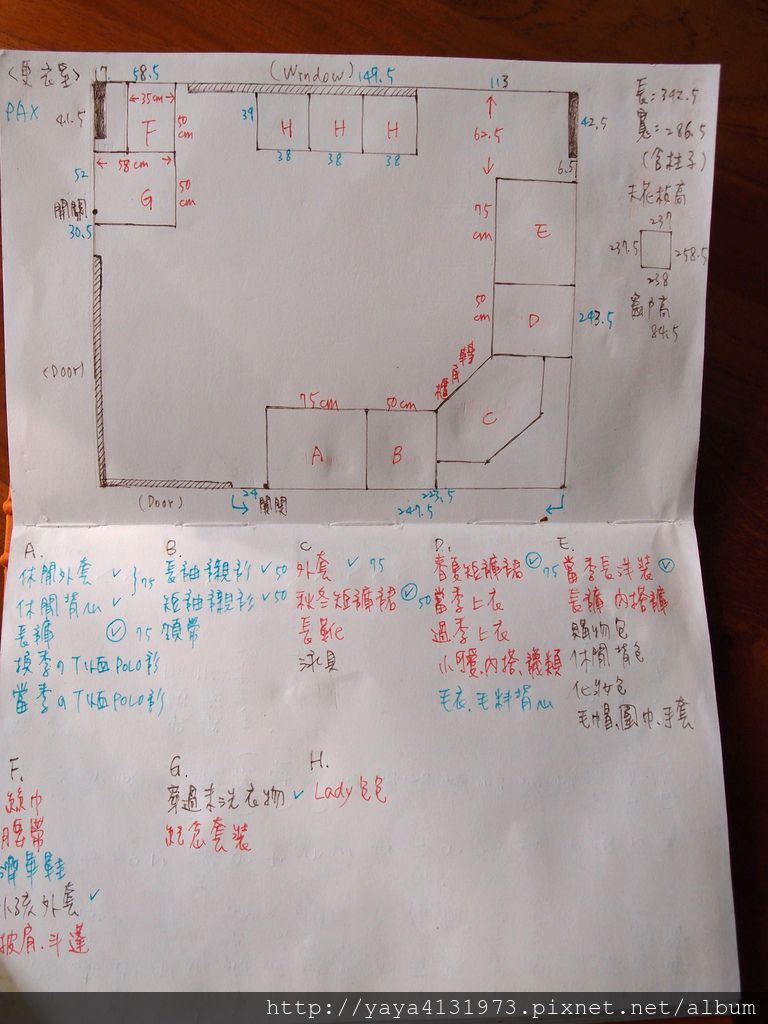 <更衣室>
17
58.5
(Window)
149.5
113
PAX
41.5
35cm
F
50cm
39
H
H
H
38
38
38
62.5
42.5
6.5
長:342.5
寬:286.5
(含柱子)
天花板高
237
237.5
258.5
238
窗戶高
84.5
52
58cm
G
50cm
開關
30.5
75cm
E
50cm
D
243.5
(Door)
轉角櫃
C
75cm
50cm
A
B
(Door)
24
開關
223.5
247.5
A.
休閒外套 ✓
休閒背心 ✓
}75
長褲 ✓ 75
換季のT恤POLO衫
當季のT恤POLO衫
B.
長袖襯衫 ✓50
短袖襯衫 ✓50
領帶
C
外套 ✓ 75
秋冬短褲裙 ✓50
長靴
泳具
D.
春夏短褲裙 ✓75
當季上衣
過季上衣
小可愛、內搭、襯類
毛衣、毛料背心
E.
當季長洋裝 ✓
長褲 內搭褲
購物包
休閒背包
化妝包
毛帽、圍巾、手套
F.
絲巾
腰帶
小孩外套 ✓
披肩、斗篷
G.
穿過未洗衣物 ✓
紀念套裝
H.
Lady包包
http://yaya4131973.pixnet.net/album